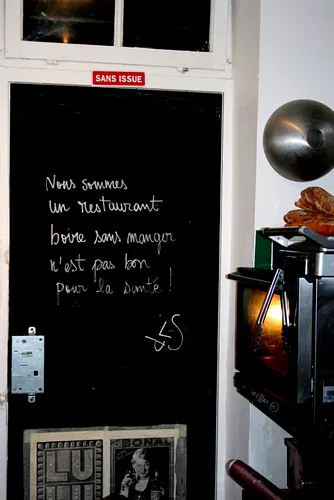 SANS ISSUE
Nous sommes
un restaurant
boire sans manger
n'est pas bon
pour la santé !
LU
BONAL